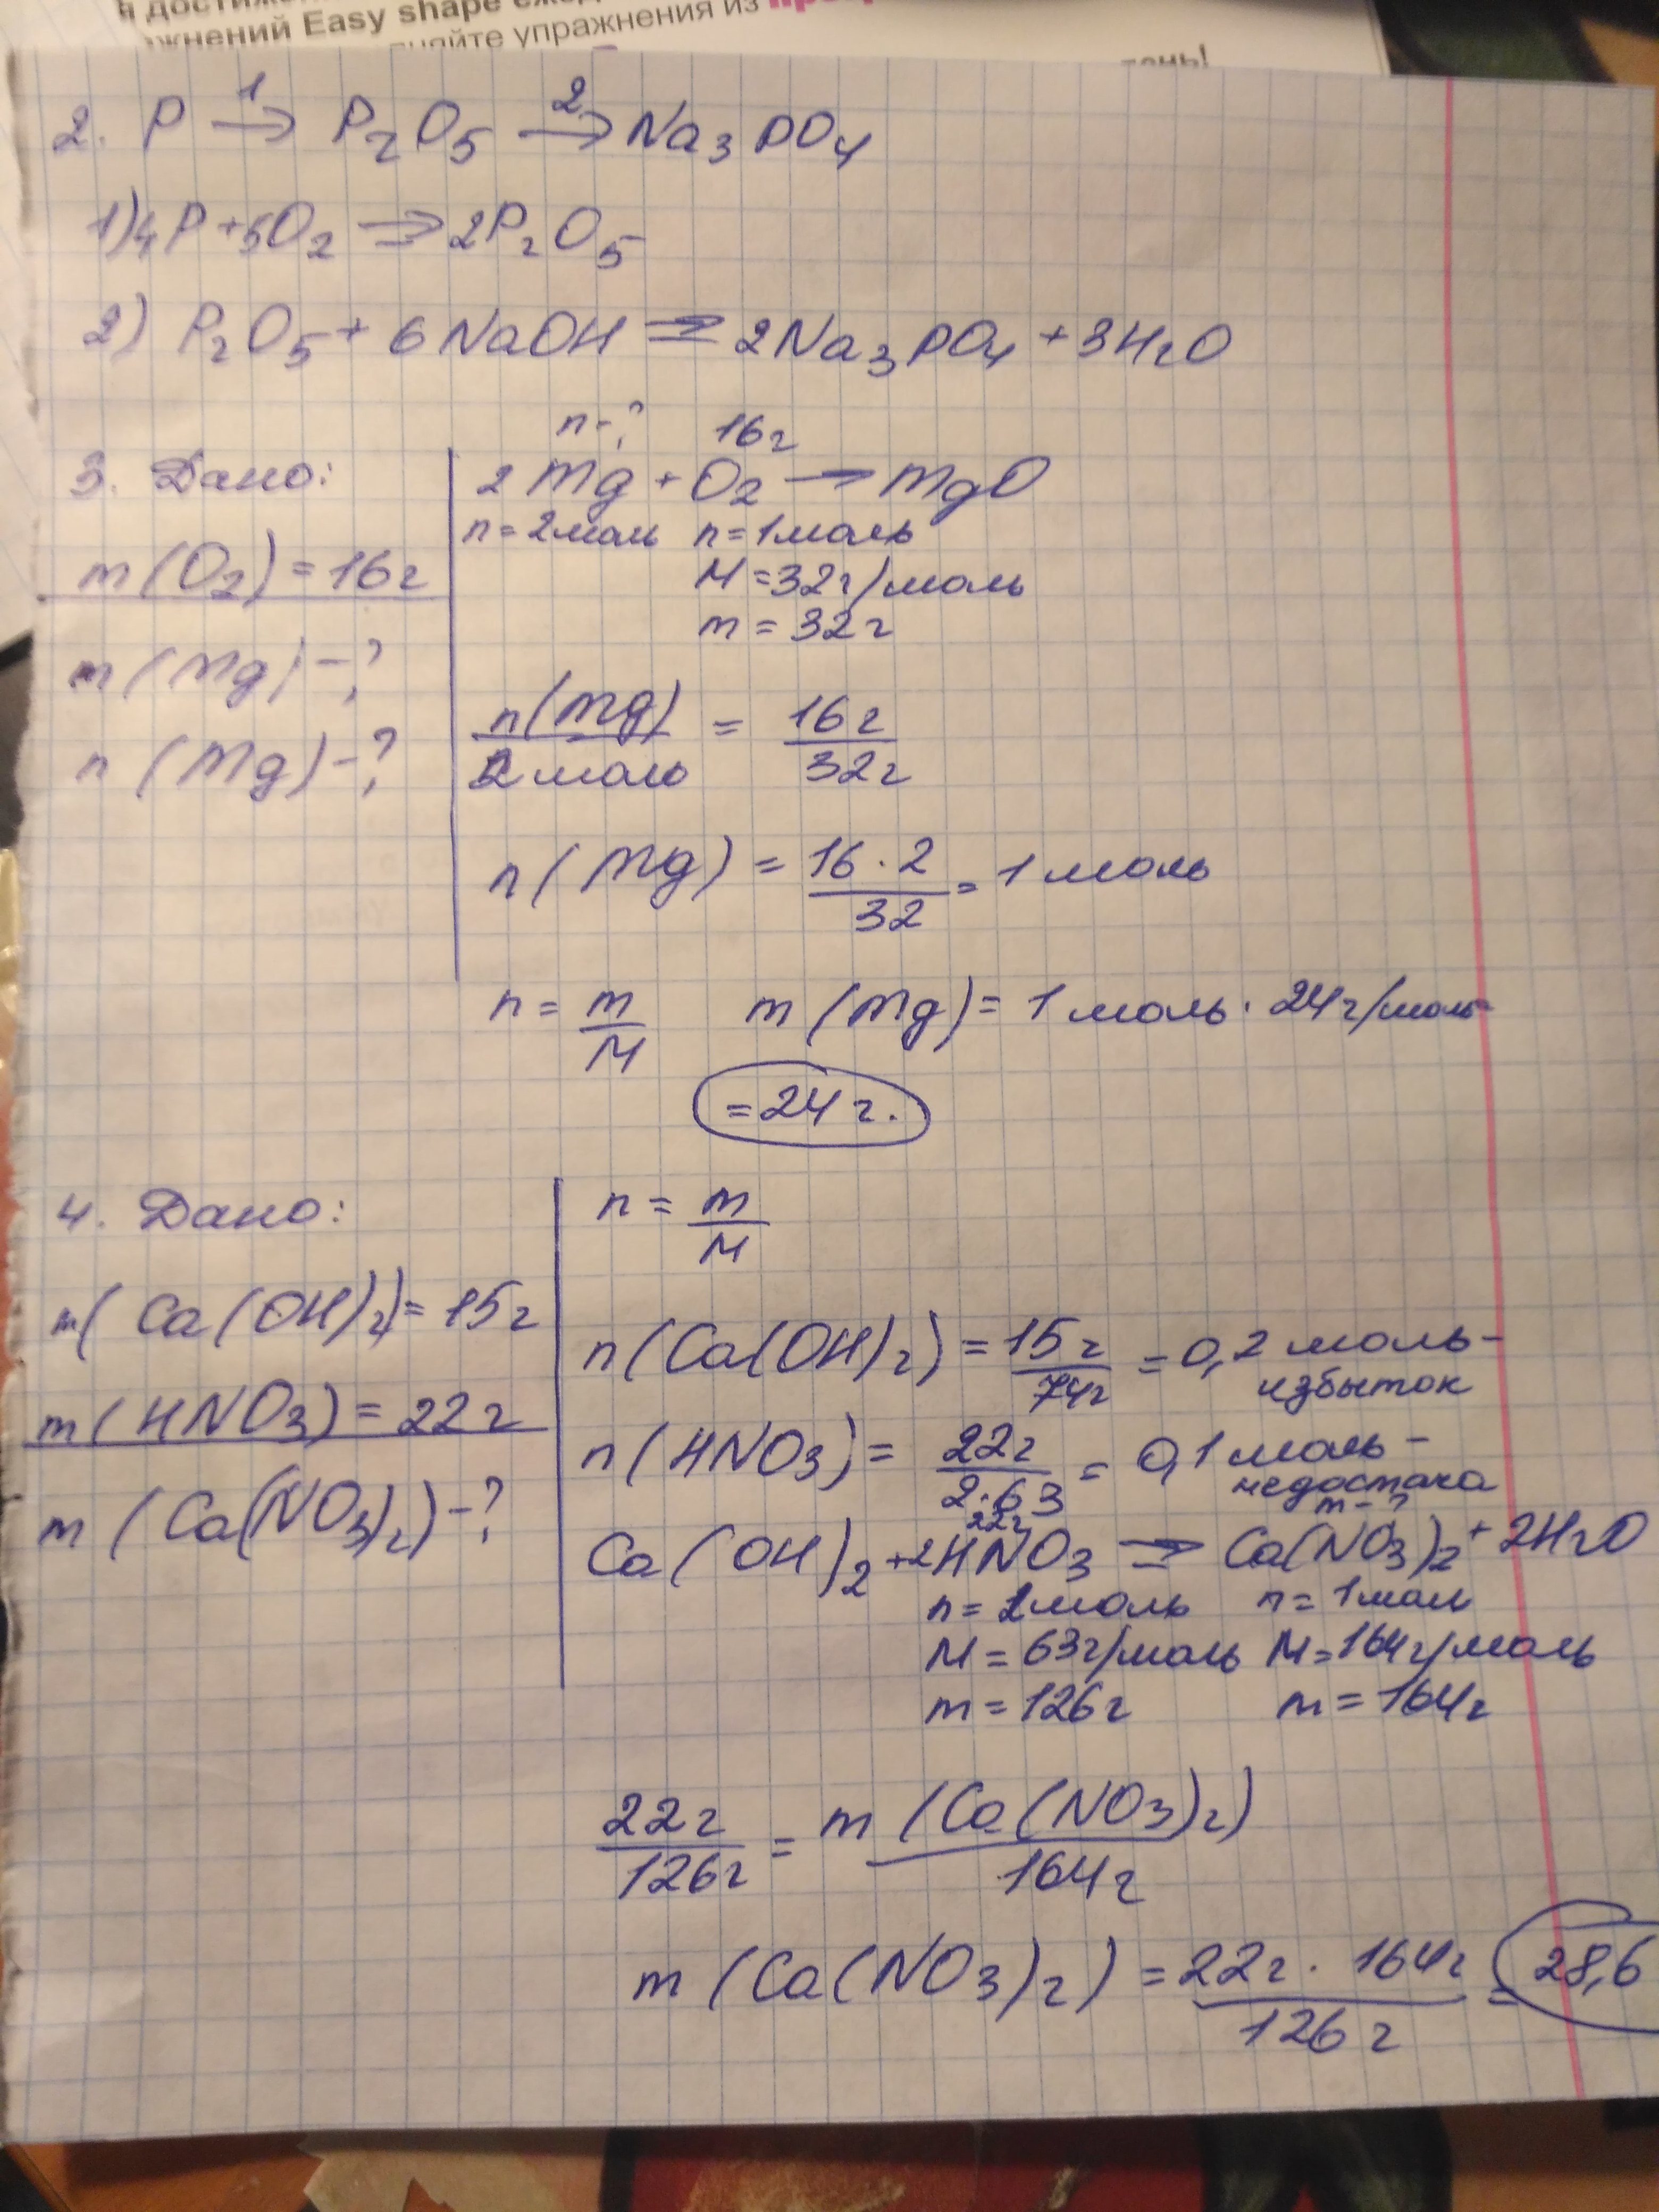 жнений Easy shape
няйте упражнения из
день!
2. P →1 P2O5 →2 Na3PO4
1) 4P + 5O2 → 2P2O5
2) P2O5 + 6NaOH → 2Na3PO4 + 3H2O
3. Дано:
m(O2) = 16г
m(Mg) - ?
n(Mg) - ?
n - ? 16г
2Mg + O2 → MgO
n = 2моль n = 1моль
M = 32г/моль
m = 32г
n(Mg)/2моль = 16г/32г
n(Mg) = 16 · 2/32 = 1 моль
n = m/M m(Mg) = 1 моль · 24г/моль
= 24 г.
4. Дано:
m(Ca(OH)2) = 15г
m(HNO3) = 22г
m(Ca(NO3)2) - ?
n = m/M
n(Ca(OH)2) = 15г/74г = 0,2 моль -
избыток
n(HNO3) = 22г/2·63 = 0,1 моль -
недостача
22г m - ?
Ca(OH)2 + 2HNO3 → Ca(NO3)2 + 2H2O
n = 2моль n = 1мол
M = 63г/моль M = 164г/моль
m = 126г m = 164г
22г/126г = m(Ca(NO3)2)/164г
m(Ca(NO3)2) = 22г · 164г/126г = 28,6